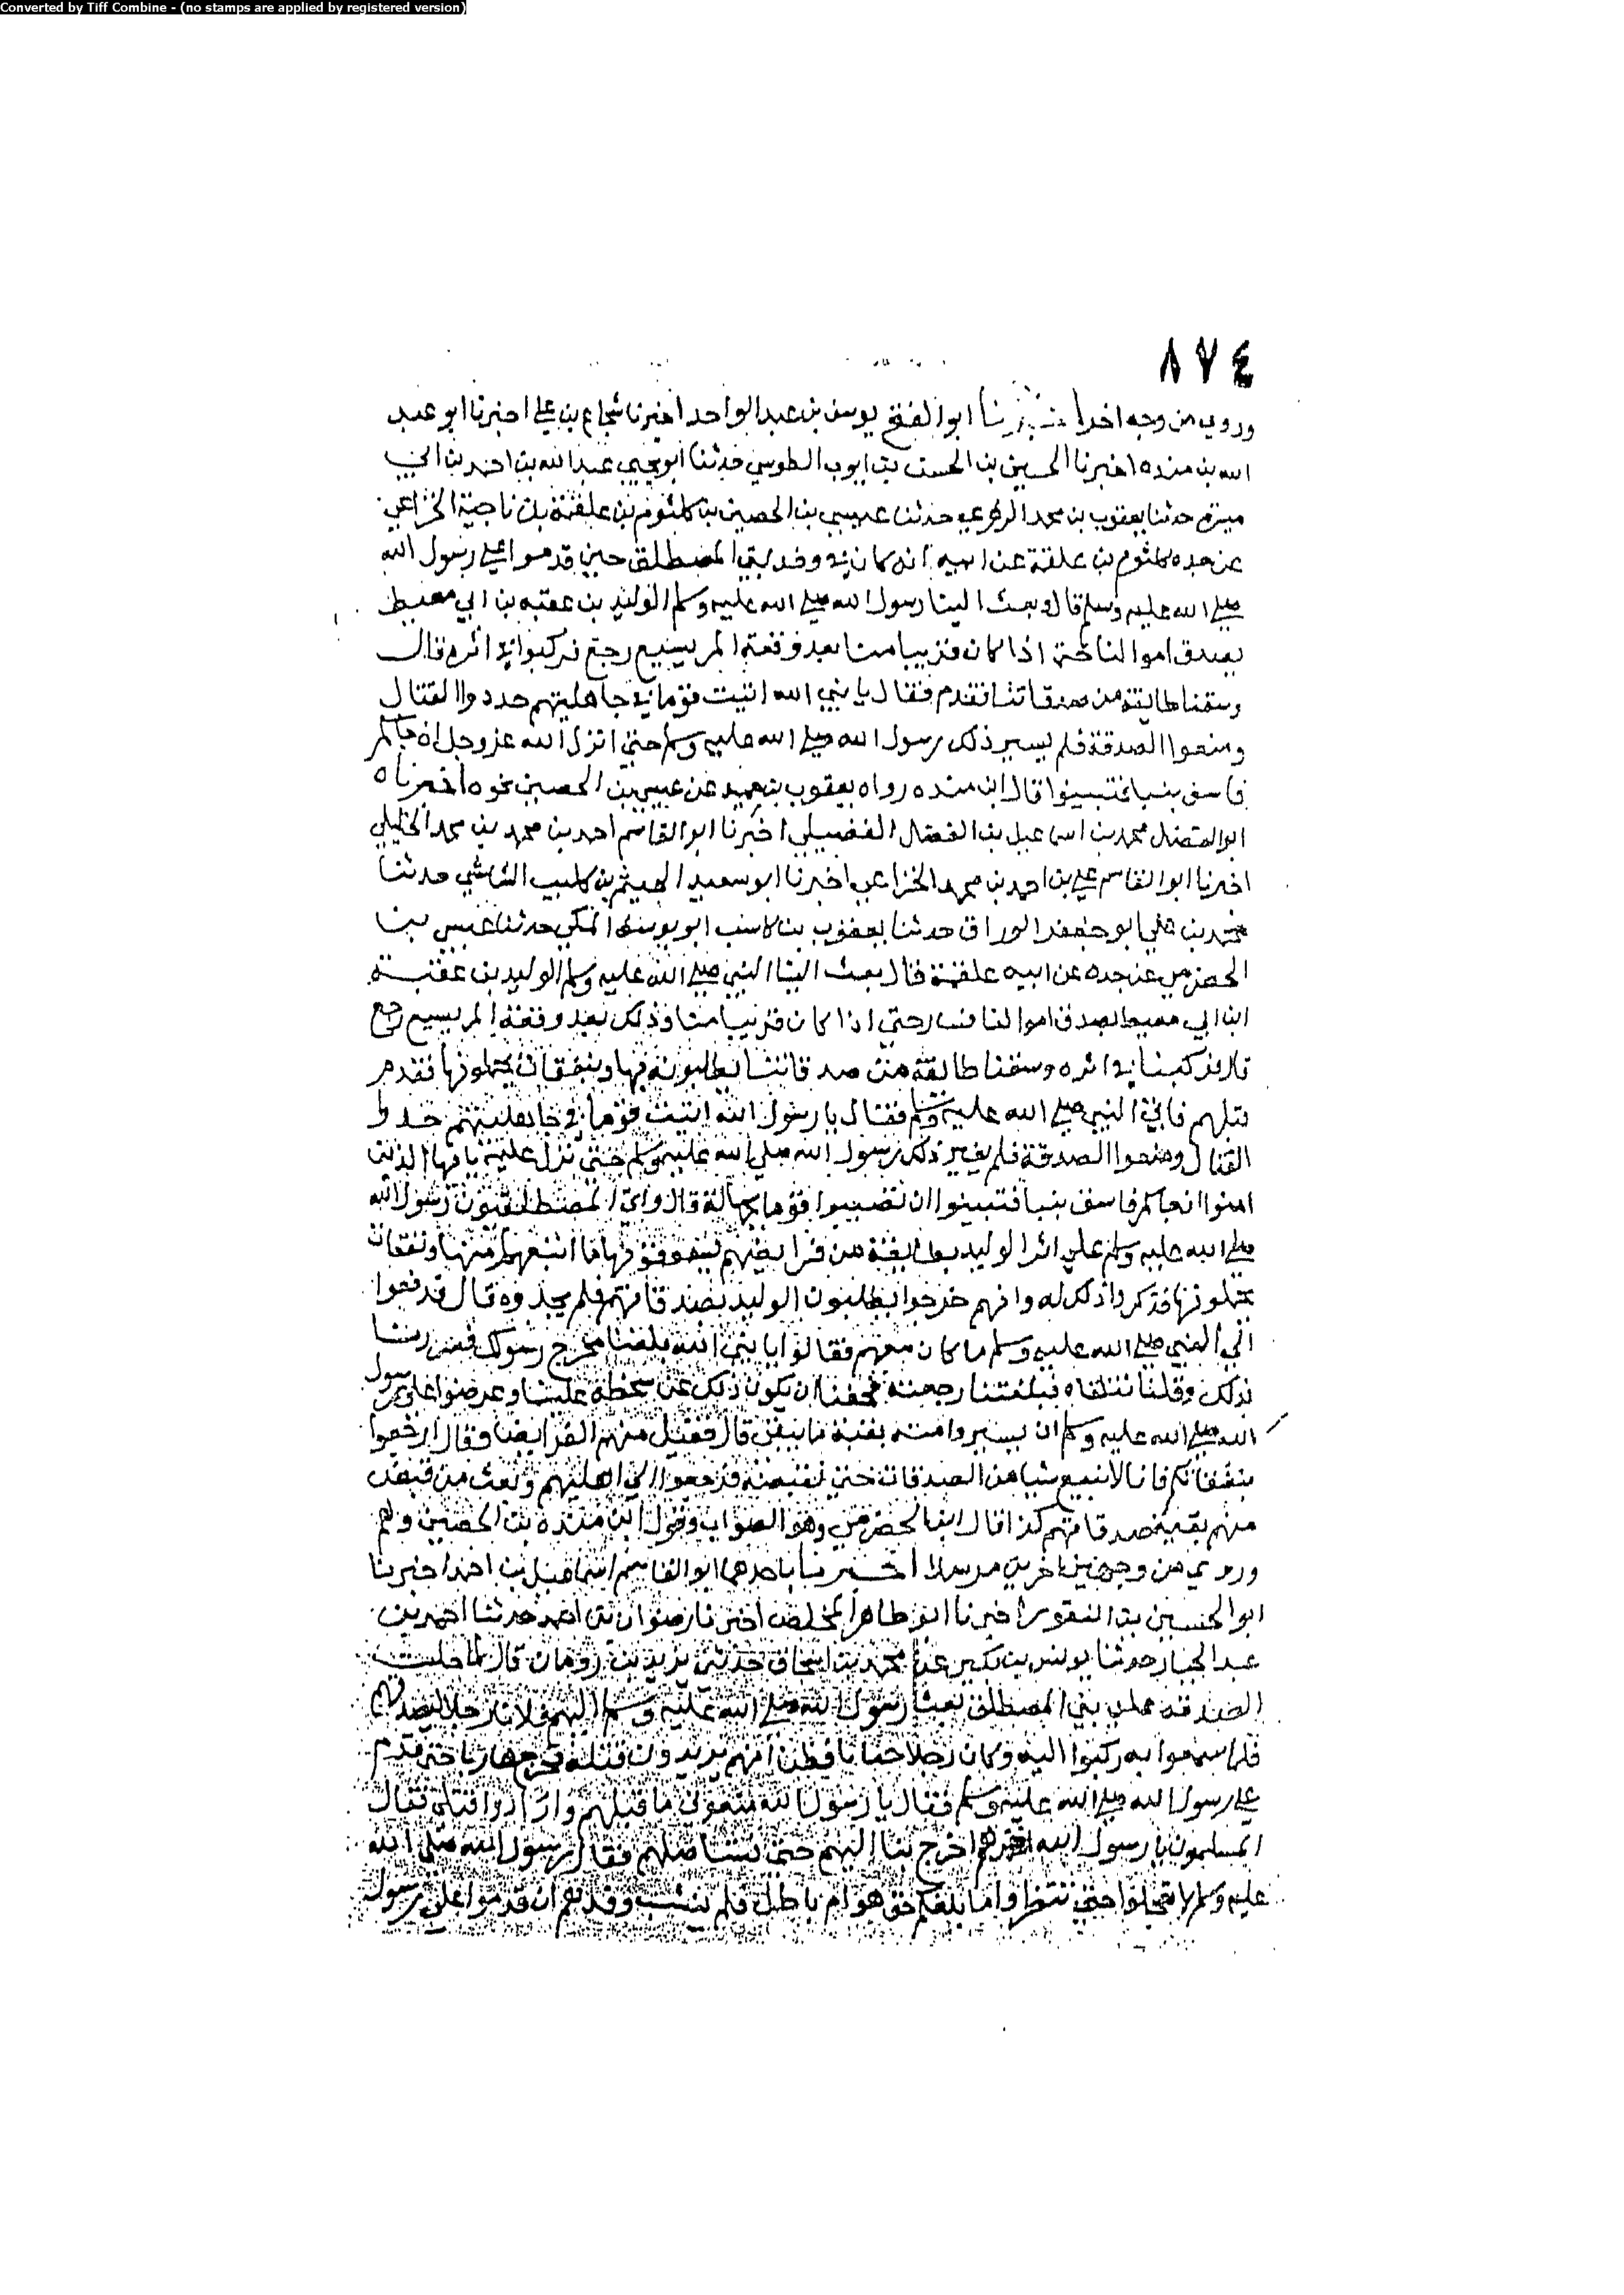 Converted by Tiff Combine - (no stamps are applied by registered version)
٨٧٤
وروي من وجه اخر اخبرنا ابو الفتح يوسف بن عبد الواحد اخبرنا شجاع بن علي اخبرنا ابو عبد
الله بن منده اخبرنا الحسين بن الحسن بن ايوب الطوسي حدثنا ابو يحيى عبد الله بن احمد بن ابي
ميسرة حدثنا يعقوب بن محمد الزهري حدثنا عيسى بن الحصين بن كلثوم بن علقمة بن ناجية الخزاعي
عن جده كلثوم بن علقمة عن ابيه انه كان في وفد بني المصطلق حين قدموا على رسول الله
صلى الله عليه وسلم قال وبعث الينا رسول الله صلى الله عليه وسلم الوليد بن عقبه بن ابي معيط
يصدق اموالنا حتى اذا كان قريبا منا بعد وقعة المريسيع رجع فركبوا في اثره قال
وسقنا طايفة من صدقاتنا فقدم فقال يا نبي الله اتيت قوما في جاهليتهم جددوا القتال
ومنعوا الصدقة فلم يسير ذلك رسول الله صلى الله عليه وسلم حتى انزل الله عز وجل ان جاكم
فاسق بنبا فتبينوا قال ابن منده رواه يعقوب بن حميد عن عيسى بن الحصين نحوه اخبرناه
ابو الفضل محمد بن اسماعيل بن الفضل الفضيلي اخبرنا ابو القاسم احمد بن محمد بن محمد الخليلي
اخبرنا ابو القاسم علي بن احمد بن محمد الخزاعي اخبرنا ابو سعيد الهيثم بن كليب الشاشي حدثنا
محمد بن علي ابو جعفر الوراق حدثنا يعقوب بن كاسب ابو يوسف المكي حدثنا عيسى بن
الحضرمي عن جده عن ابيه علقمة قال بعث الينا النبي صلى الله عليه وسلم الوليد بن عقبة
ابن ابي معيط يصدق اموالنا فسار حتى اذا كان قريبا منا وذلك بعد وقعة المريسيع رجع
قال فركبنا في اثره وسقنا طايفة من صدقاتنا يطلبونه بها وبنفقات يحملونها فقدم
قبلهم فاتى النبي صلى الله عليه وسلم فقال يا رسول الله اتيت قوما في جاهليتهم جدوا
القتال ومنعوا الصدقة فلم يغير ذلك رسول الله صلى الله عليه وسلم حتى نزل عليه يا ايها الذين
امنوا ان جاكم فاسق بنبا فتبينوا ان تصيبوا قوما بجهالة قال واتى المصطلقيون رسول الله
صلى الله عليه وسلم على اثر الوليد بطايفة من فرايضهم يسوقونها ما اتبعهم منها ونفقات
يحملونها فذكروا ذلك له وانهم خرجوا يطلبون الوليد بصدقاتهم فلم يجدوه قال فدفعوا
الى النبي صلى الله عليه وسلم ما كان معهم فقالوا يا نبي الله بلغنا مخرج رسولك فسررنا
بذلك وقلنا نتلقاه فبلغتنا رجعته فخفنا ان يكون ذلك عن سخطة علينا وعرضوا على رسول
الله صلى الله عليه وسلم ان يسيروا منه بقية ما بيقن قال فقبل منهم الفرايض وقال ارجعوا
بنفقاتكم فانا لا نبيع شيا من الصدقات حتى نقبضه فرجعوا الى اهليهم وبعث من قبض
منهم بقية صدقاتهم كذا قال ابن الحضرمي وهو الصواب وقول ابن منده بن الحصين وهم
وروي من وجهين اخرين مرسلا اخبرنا باحدهما ابو القاسم اسماعيل بن احمد اخبرنا
ابو الحسين بن النقور اخبرنا ابو طاهر المخلص اخبرنا رضوان بن احمد حدثنا احمد بن
عبد الجبار حدثنا يونس بن بكير عن محمد بن اسحاق حدثني يزيد بن رومان قال لما حلت
الصدقه على بني المصطلق بعث رسول الله صلى الله عليه وسلم اليهم فلانا رجلا ليصدقهم
فلما سمعوا به ركبوا اليه وكان رجلا جبانا فظن انهم يريدون قتله فخرج هاربا حتى قدم
على رسول الله صلى الله عليه وسلم فقال يا رسول الله منعوني ما قبلهم وارادوا قتلي فقال
المسلمون يا رسول الله اخرج بنا اليهم حتى نستاصلهم فقال رسول الله صلى الله
عليه وسلم لا تعجلوا حتى ننظر واما بلغكم حق هو ام باطل فلم ينشب وفدهم ان قدموا على رسول